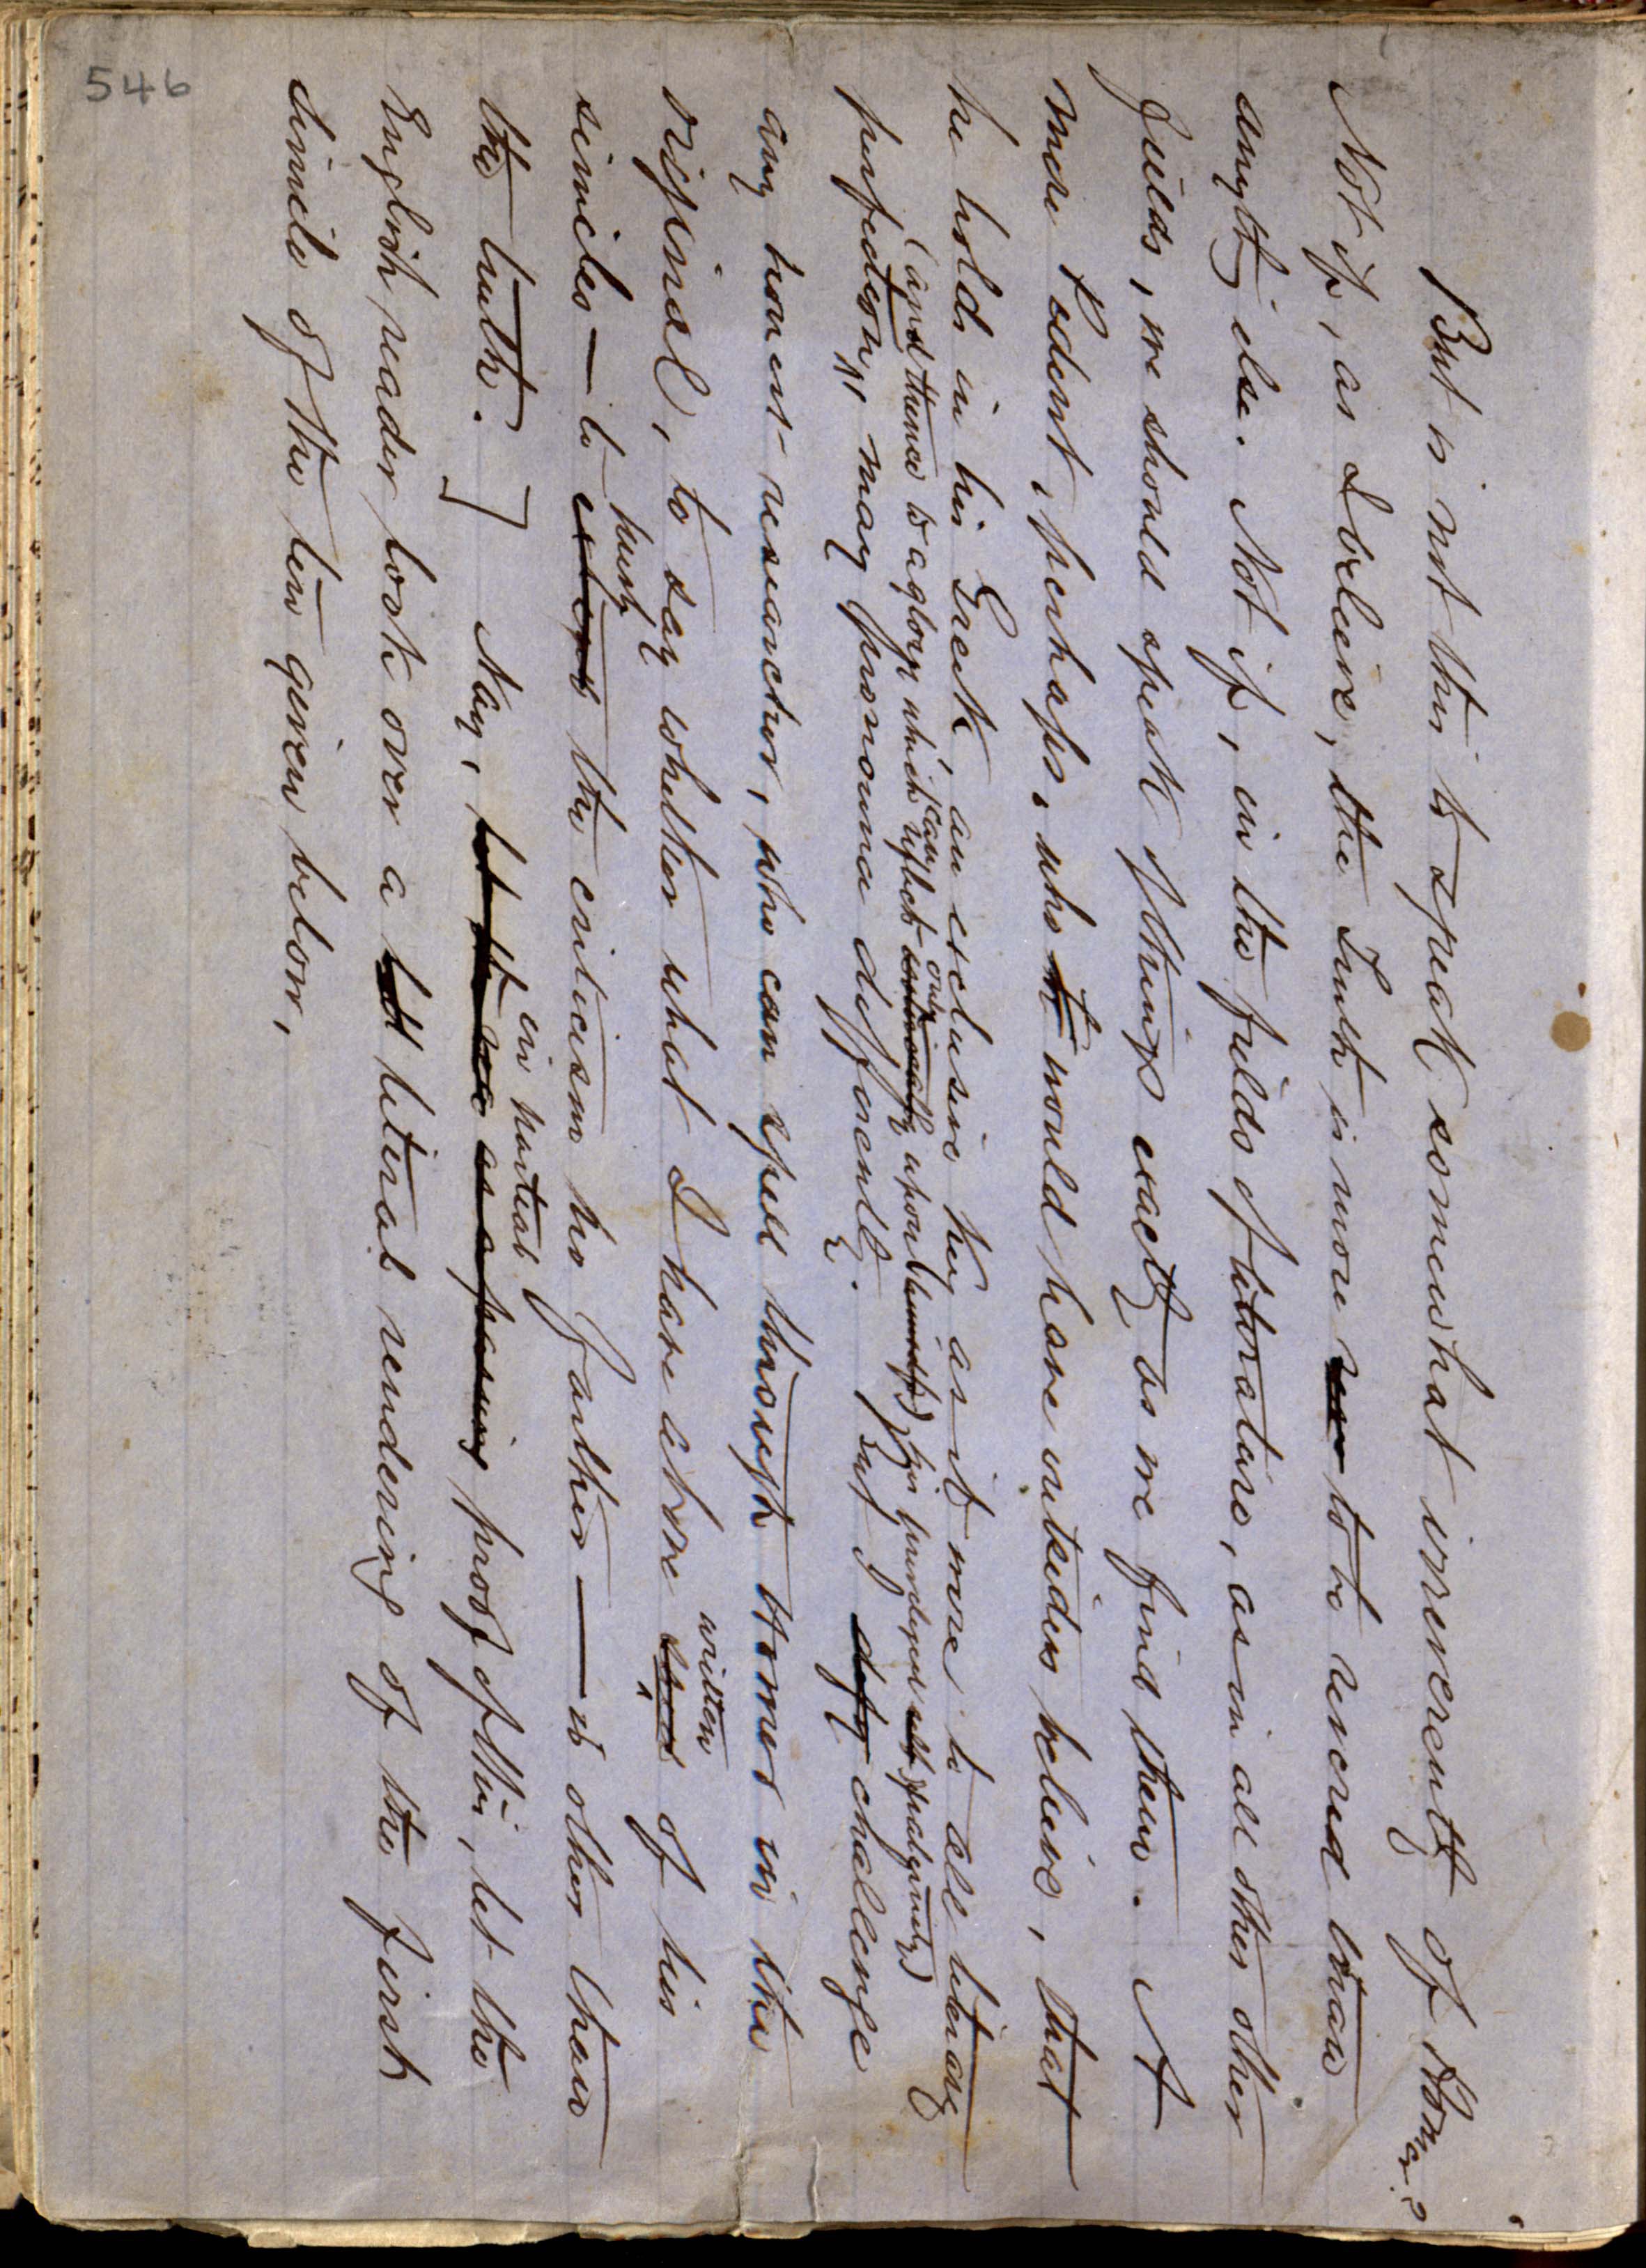 But is not this to speak somewhat irreverently of Homer?
Not if, as I believe, the Truth is more to be revered than
anything else. Not if, in the fields of literature, as in all other other
fields, we should speak of things exactly as we find them. A
mere Pedant, perhaps, who would have outsiders believe, that
he holds in his Greek, an exclusive key as it were to all literary
(and thence to a glory which can reflect only upon himself) (his privileged
perfection, may pronounce differently. But I defy challenge
any honest researcher, who can spell through Homer in the
written
original, to say whether what I have above said of his
purely
similes — to extend the criticism no farther — is other than
in partial
the truth.] Nay, as a passing proof of this, let the
English reader look over a literal rendering of the first
simile of the ten given below,
546